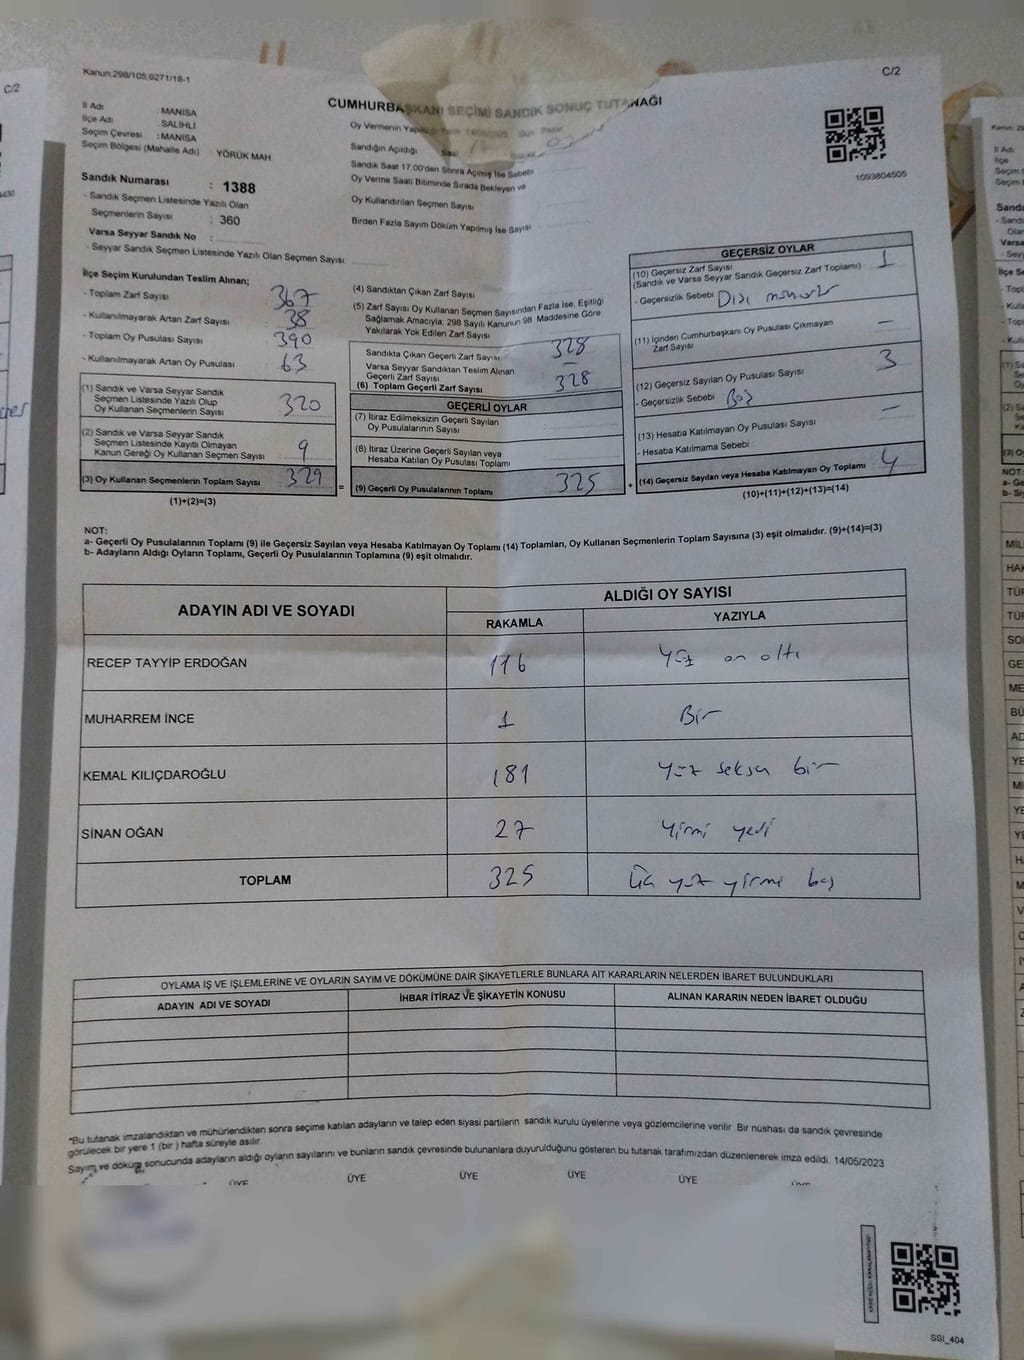 Kanun:298/105,6271/18-1
C/2
C/2
CUMHURBAŞKANI SEÇİMİ SANDIK SONUÇ TUTANAĞI
İl Adı : MANİSA
İlçe Adı : SALİHLİ
Seçim Çevresi : MANİSA
Seçim Bölgesi (Mahalle Adı) YÖRÜK MAH.
Sandık Numarası : 1388
- Sandık Seçmen Listesinde Yazılı Olan
Seçmenlerin Sayısı : 360
Varsa Seyyar Sandık No :
- Seyyar Sandık Seçmen Listesinde Yazılı Olan Seçmen Sayısı
Oy Vermenin
Sandığın Açıldığı
Sandık Saat 17:00'den Sonra Açılmış İse Sebebi
Oy Verme Saati Bitiminde Sırada Bekleyen ve
Oy Kullandırılan Seçmen Sayısı
Birden Fazla Sayım Döküm Yapılmış İse Sayısı
1093804505
İlçe Seçim Kurulundan Teslim Alınan;
- Toplam Zarf Sayısı 367
- Kullanılmayarak Artan Zarf Sayısı 38
- Toplam Oy Pusulası Sayısı 390
- Kullanılmayarak Artan Oy Pusulası 63
(1) Sandık ve Varsa Seyyar Sandık
Seçmen Listesinde Yazılı Olup
Oy Kullanan Seçmenlerin Sayısı 320
(2) Sandık ve Varsa Seyyar Sandık
Seçmen Listesinde Kayıtlı Olmayan
Kanun Gereği Oy Kullanan Seçmen Sayısı 9
(3) Oy Kullanan Seçmenlerin Toplam Sayısı 329
(1)+(2)=(3)
(4) Sandıktan Çıkan Zarf Sayısı
(5) Zarf Sayısı Oy Kullanan Seçmen Sayısından Fazla İse, Eşitliği
Sağlamak Amacıyla; 298 Sayılı Kanunun 98. Maddesine Göre
Yakılarak Yok Edilen Zarf Sayısı
Sandıkta Çıkan Geçerli Zarf Sayısı 328
Varsa Seyyar Sandıktan Teslim Alınan
Geçerli Zarf Sayısı
(6) Toplam Geçerli Zarf Sayısı 328
GEÇERLİ OYLAR
(7) İtiraz Edilmeksizin Geçerli Sayılan
Oy Pusulalarının Sayısı
(8) İtiraz Üzerine Geçerli Sayılan veya
Hesaba Katılan Oy Pusulası Toplamı
= (9) Geçerli Oy Pusulalarının Toplamı 325
GEÇERSİZ OYLAR
(10) Geçersiz Zarf Sayısı 1
(Sandık ve Varsa Seyyar Sandık Geçersiz Zarf Toplamı)
- Geçersizlik Sebebi Dışı
(11) İçinden Cumhurbaşkanı Oy Pusulası Çıkmayan
Zarf Sayısı —
(12) Geçersiz Sayılan Oy Pusulası Sayısı 3
- Geçersizlik Sebebi Boş
(13) Hesaba Katılmayan Oy Pusulası Sayısı —
- Hesaba Katılmama Sebebi
+ (14) Geçersiz Sayılan veya Hesaba Katılmayan Oy Toplamı 4
(10)+(11)+(12)+(13)=(14)
NOT:
a- Geçerli Oy Pusulalarının Toplamı (9) ile Geçersiz Sayılan veya Hesaba Katılmayan Oy Toplamı (14) Toplamları, Oy Kullanan Seçmenlerin Toplam Sayısına (3) eşit olmalıdır. (9)+(14)=(3)
b- Adayların Aldığı Oyların Toplamı, Geçerli Oy Pusulalarının Toplamına (9) eşit olmalıdır.
ADAYIN ADI VE SOYADI
ALDIĞI OY SAYISI
RAKAMLA YAZIYLA
RECEP TAYYİP ERDOĞAN 116 Yüz on altı
MUHARREM İNCE 1 Bir
KEMAL KILIÇDAROĞLU 181 Yüz seksen bir
SİNAN OĞAN 27 Yirmi yedi
TOPLAM 325 Üç yüz yirmi beş
OYLAMA İŞ VE İŞLEMLERİNE VE OYLARIN SAYIM VE DÖKÜMÜNE DAİR ŞİKAYETLERLE BUNLARA AİT KARARLARIN NELERDEN İBARET BULUNDUKLARI
ADAYIN ADI VE SOYADI İHBAR İTİRAZ VE ŞİKAYETİN KONUSU ALINAN KARARIN NEDEN İBARET OLDUĞU
*Bu tutanak imzalandıktan ve mühürlendikten sonra seçime katılan adayların ve talep eden siyasi partilerin sandık kurulu üyelerine veya gözlemcilerine verilir. Bir nüshası da sandık çevresinde
görülecek bir yere 1 (bir) hafta süreyle asılır.
Sayım ve döküm sonucunda adayların aldığı oyların sayılarını ve bunların sandık çevresinde bulunanlara duyurulduğunu gösteren bu tutanak tarafımızdan düzenlenerek imza edildi. 14/05/2023
ÜYE ÜYE ÜYE ÜYE ÜYE
SSI_404